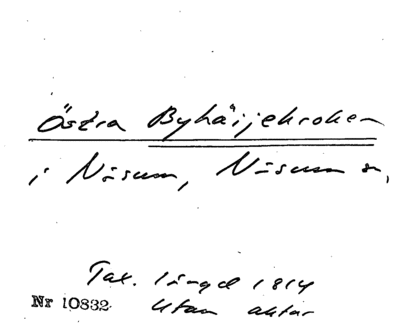 Östra Byhäijekroken
i Näsum, Näsum s.
Tax. längd 1814
Nr 10832 Utan aktor